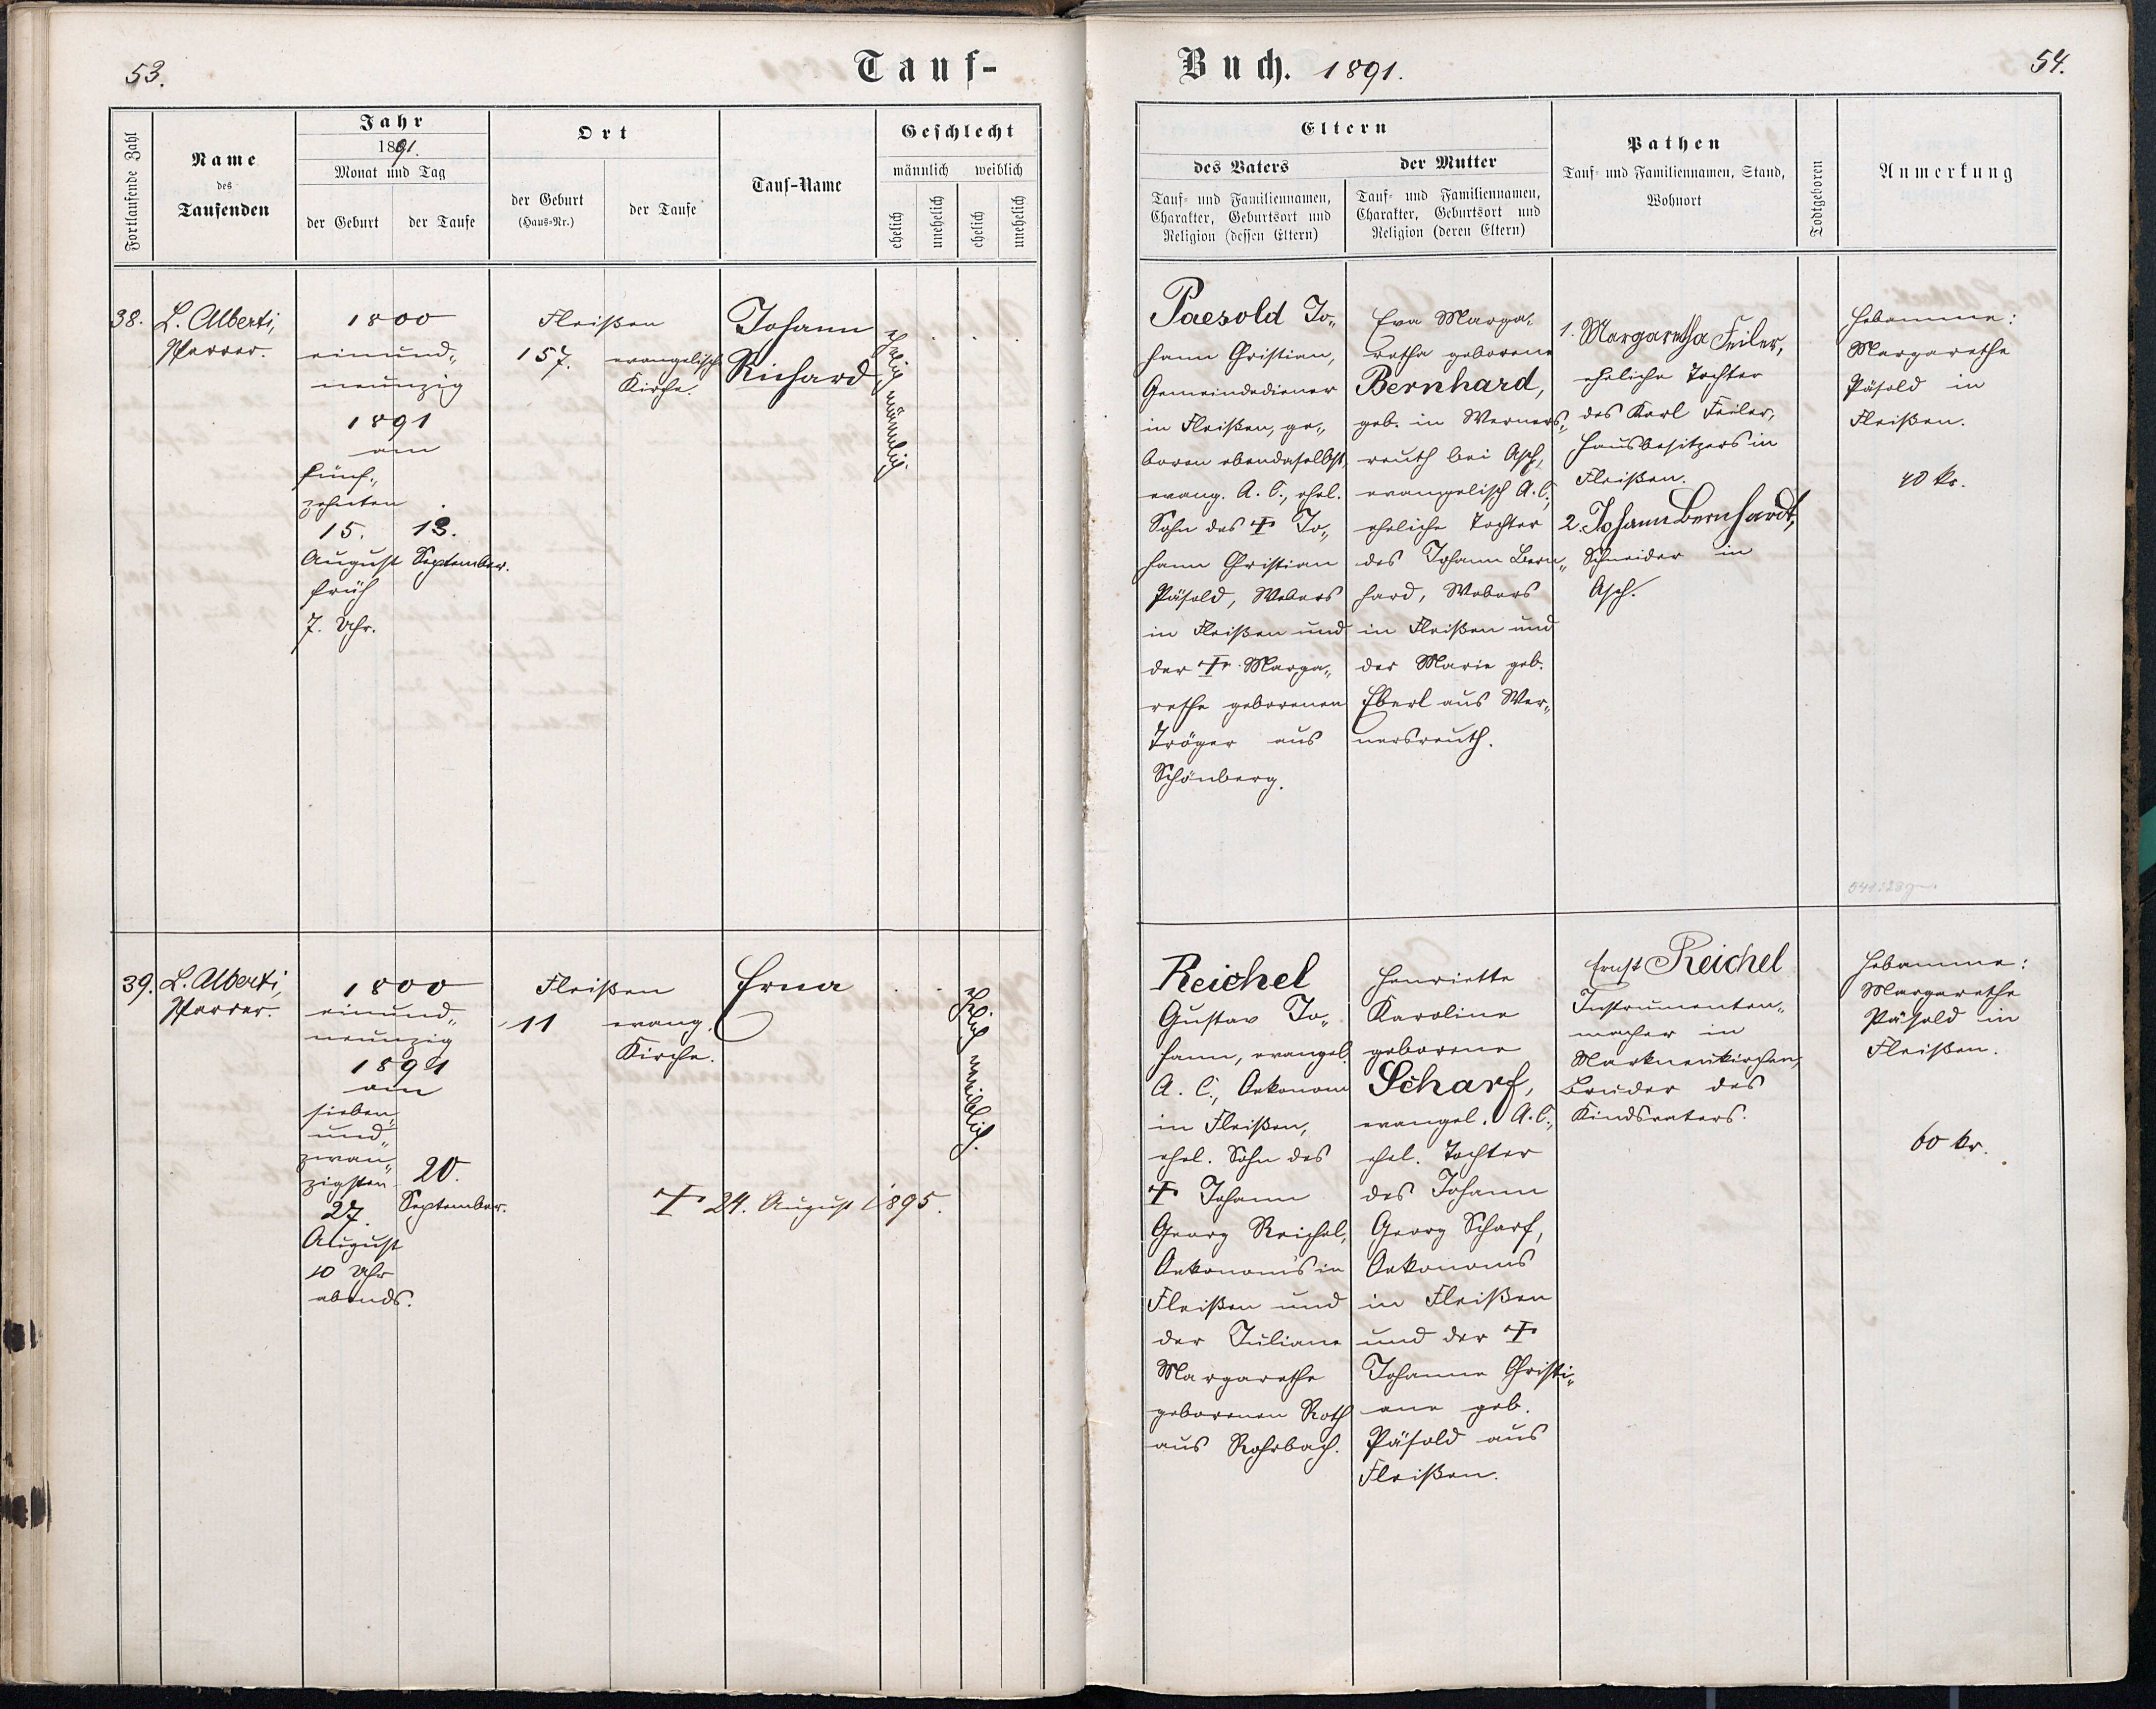 53.
Tauf-
Fortlaufende Zahl
Name
des
Taufenden
Jahr
1891.
Monat und Tag
der Geburt
der Taufe
Ort
der Geburt
(Haus-Nr.)
der Taufe
Tauf-Name
Geschlecht
männlich
weiblich
ehelich
unehelich
ehelich
unehelich
38.
L. Alberti,
Pfarrer.
1800
einund„
neunzig
1891
am
fünf„
zehnten
15.
August
früh
7. Uhr.
13.
September.
Fleißen
157.
evangelische
Kirche.
Johann
Richard
ehelich männlich.
39.
L. Alberti,
Pfarrer.
1800
einund„
neunzig
1891
am
sieben„
und„
zwan„
zigsten
27.
August
10 Uhr
abends.
20.
September.
Fleißen
11
evang.
Kirche.
Erna
ehelich weiblich.
† 24. August 1895.
Buch. 1891.
54.
Eltern
des Vaters
Tauf- und Familiennamen,
Charakter, Geburtsort und
Religion (dessen Eltern)
der Mutter
Tauf- und Familiennamen,
Charakter, Geburtsort und
Religion (deren Eltern)
Pathen
Tauf- und Familiennamen, Stand,
Wohnort
Todtgeboren
Anmerkung
Paesold Jo„
hann Christian,
Gemeindediener
in Fleißen, ge„
boren ebendaselbst,
evang. A. C., ehel.
Sohn des † Jo„
hann Christian
Päsold, Webers
in Fleißen und
der † Marga„
rethe geborenen
Tröger aus
Schönberg.
Eva Marga„
retha geborene
Bernhard,
geb. in Werners„
reuth bei Asch,
evangelisch A. C.,
eheliche Tochter
des Johann Bern„
hard, Webers
in Fleißen und
der Marie geb.
Eberl aus Wer„
nersreuth.
1. Margaretha Feiler,
eheliche Tochter
des Karl Feiler,
Hausbesitzers in
Fleißen.
2. Johann Bernhardt,
Schneider in
Asch.
Hebamme:
Margarethe
Päsold in
Fleißen.
40 kr.
Reichel
Gustav Jo„
hann, evangel.
A. C., Oekonom
in Fleißen,
ehel. Sohn des
† Johann
Georg Reichel,
Oekonoms in
Fleißen und
der Juliane
Margarethe
geborenen Roth
aus Rohrbach.
Henriette
Karoline
geborene
Scharf,
evangel. A. C.,
ehel. Tochter
des Johann
Georg Scharf,
Oekonoms
in Fleißen
und der †
Johanne Christi„
ane geb.
Päsold aus
Fleißen.
Ernst Reichel
Instrumenten„
macher in
Markneukirchen,
Bruder des
Kindsvaters.
Hebamme:
Margarethe
Päsold in
Fleißen.
60 kr.